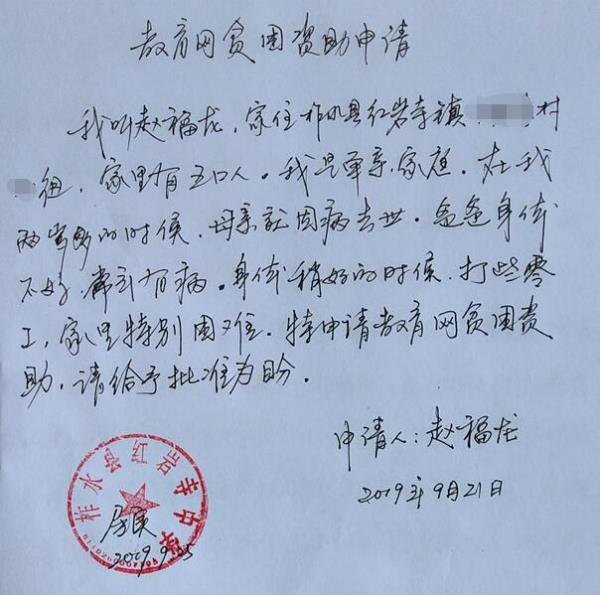 教育网贫困资助申请
我叫赵福龙，家住柞水县红岩寺镇 村
组，家里有五口人。我是单亲家庭，在我
两岁多的时候，母亲就因病去世。爸爸身体
不好，常年有病。身体稍好的时候，打些零
工，家里特别困难。特申请教育网贫困资
助，请给予批准为盼。
申请人：赵福龙
2019年9月21日
柞水县红岩寺中学
属实
2019.9.25